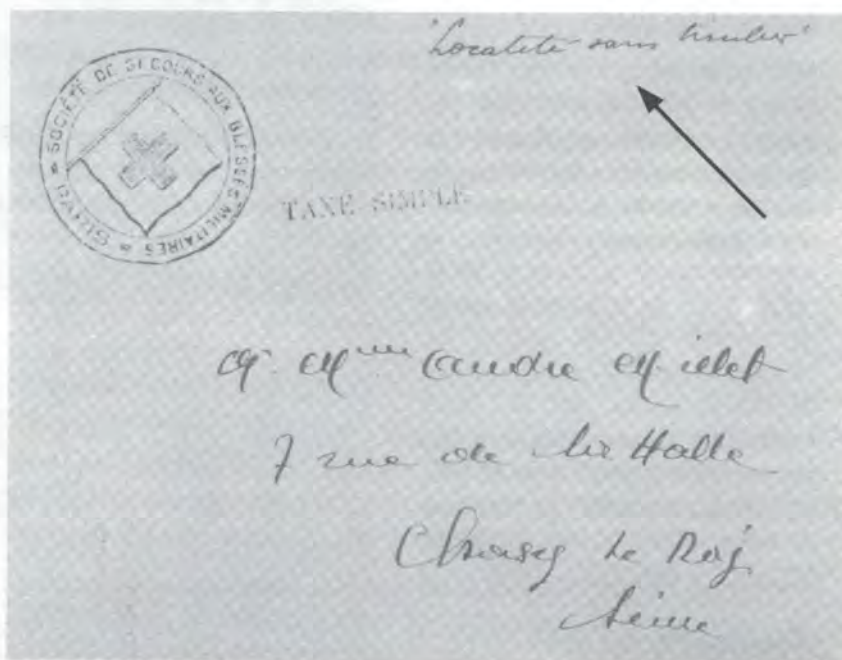 "Localité sans timbres"
SOCIÉTÉ DE SECOURS AUX BLESSÉS MILITAIRES * PARIS *
TAXE SIMPLE
Mme André Millet
7 rue de la Halle
Choisy le Roj
Seine